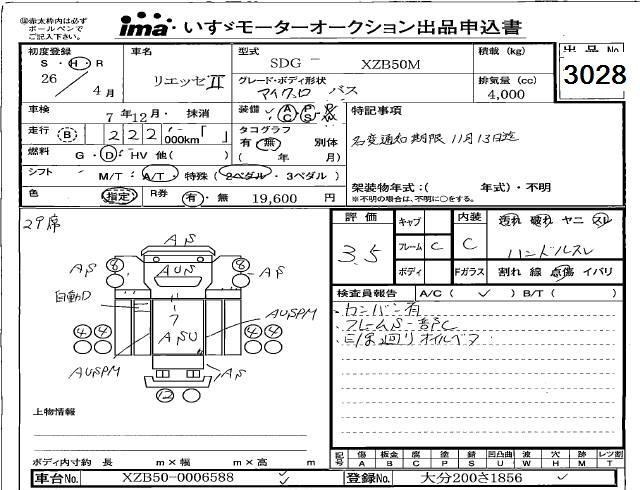 ㊟赤太枠内は必ず
ボールペンで
ご記入下さい。
ima いすゞモーターオークション出品申込書
初度登録
車名
型式
積載(kg)
出品No
S・H・R
リエッセⅡ
SDG － XZB50M
3028
26 / 4月
グレード・ボディ形状
排気量(cc)
マイクロ バス
4,000
車検
7年12月・ 抹消
装備
A P
C S
特記事項
走行
B
222
000km「 」
タコグラフ
有 無 別体
( 年 月)
名変通知期限 11月13日迄
燃料
G・D・HV 他( )
シフト
M/T・A/T・特殊(2ペダル・3ペダル)
架装物年式:( 年式)・不明
※不明の場合は、不明に○をする。
色
指定
R券
有・無
19,600 円
29席
評価
3.5
キャブ
フレーム C
ボディ
内装
C
Fガラス
汚れ 破れ ヤニ スレ
ハンドルスレ
割れ 線 点傷 イバリ
検査員報告
A/C( ✓ )
B/T( )
・カンバン有
・フレームS一部C
AS
8
AUS
8
AS
AS
自動D
7
ASU
AUSPM
4 4
4 4
AUSPM
AS
12
上物情報
ボディ内寸約 長 m×幅 m×高 m
記号
傷 板金 腐 塗 錆 凹凸曲 波 穴 跡 レツ割
A B C P S U W H M T
車台No.
XZB50-0006588
登録No.
大分200さ1856